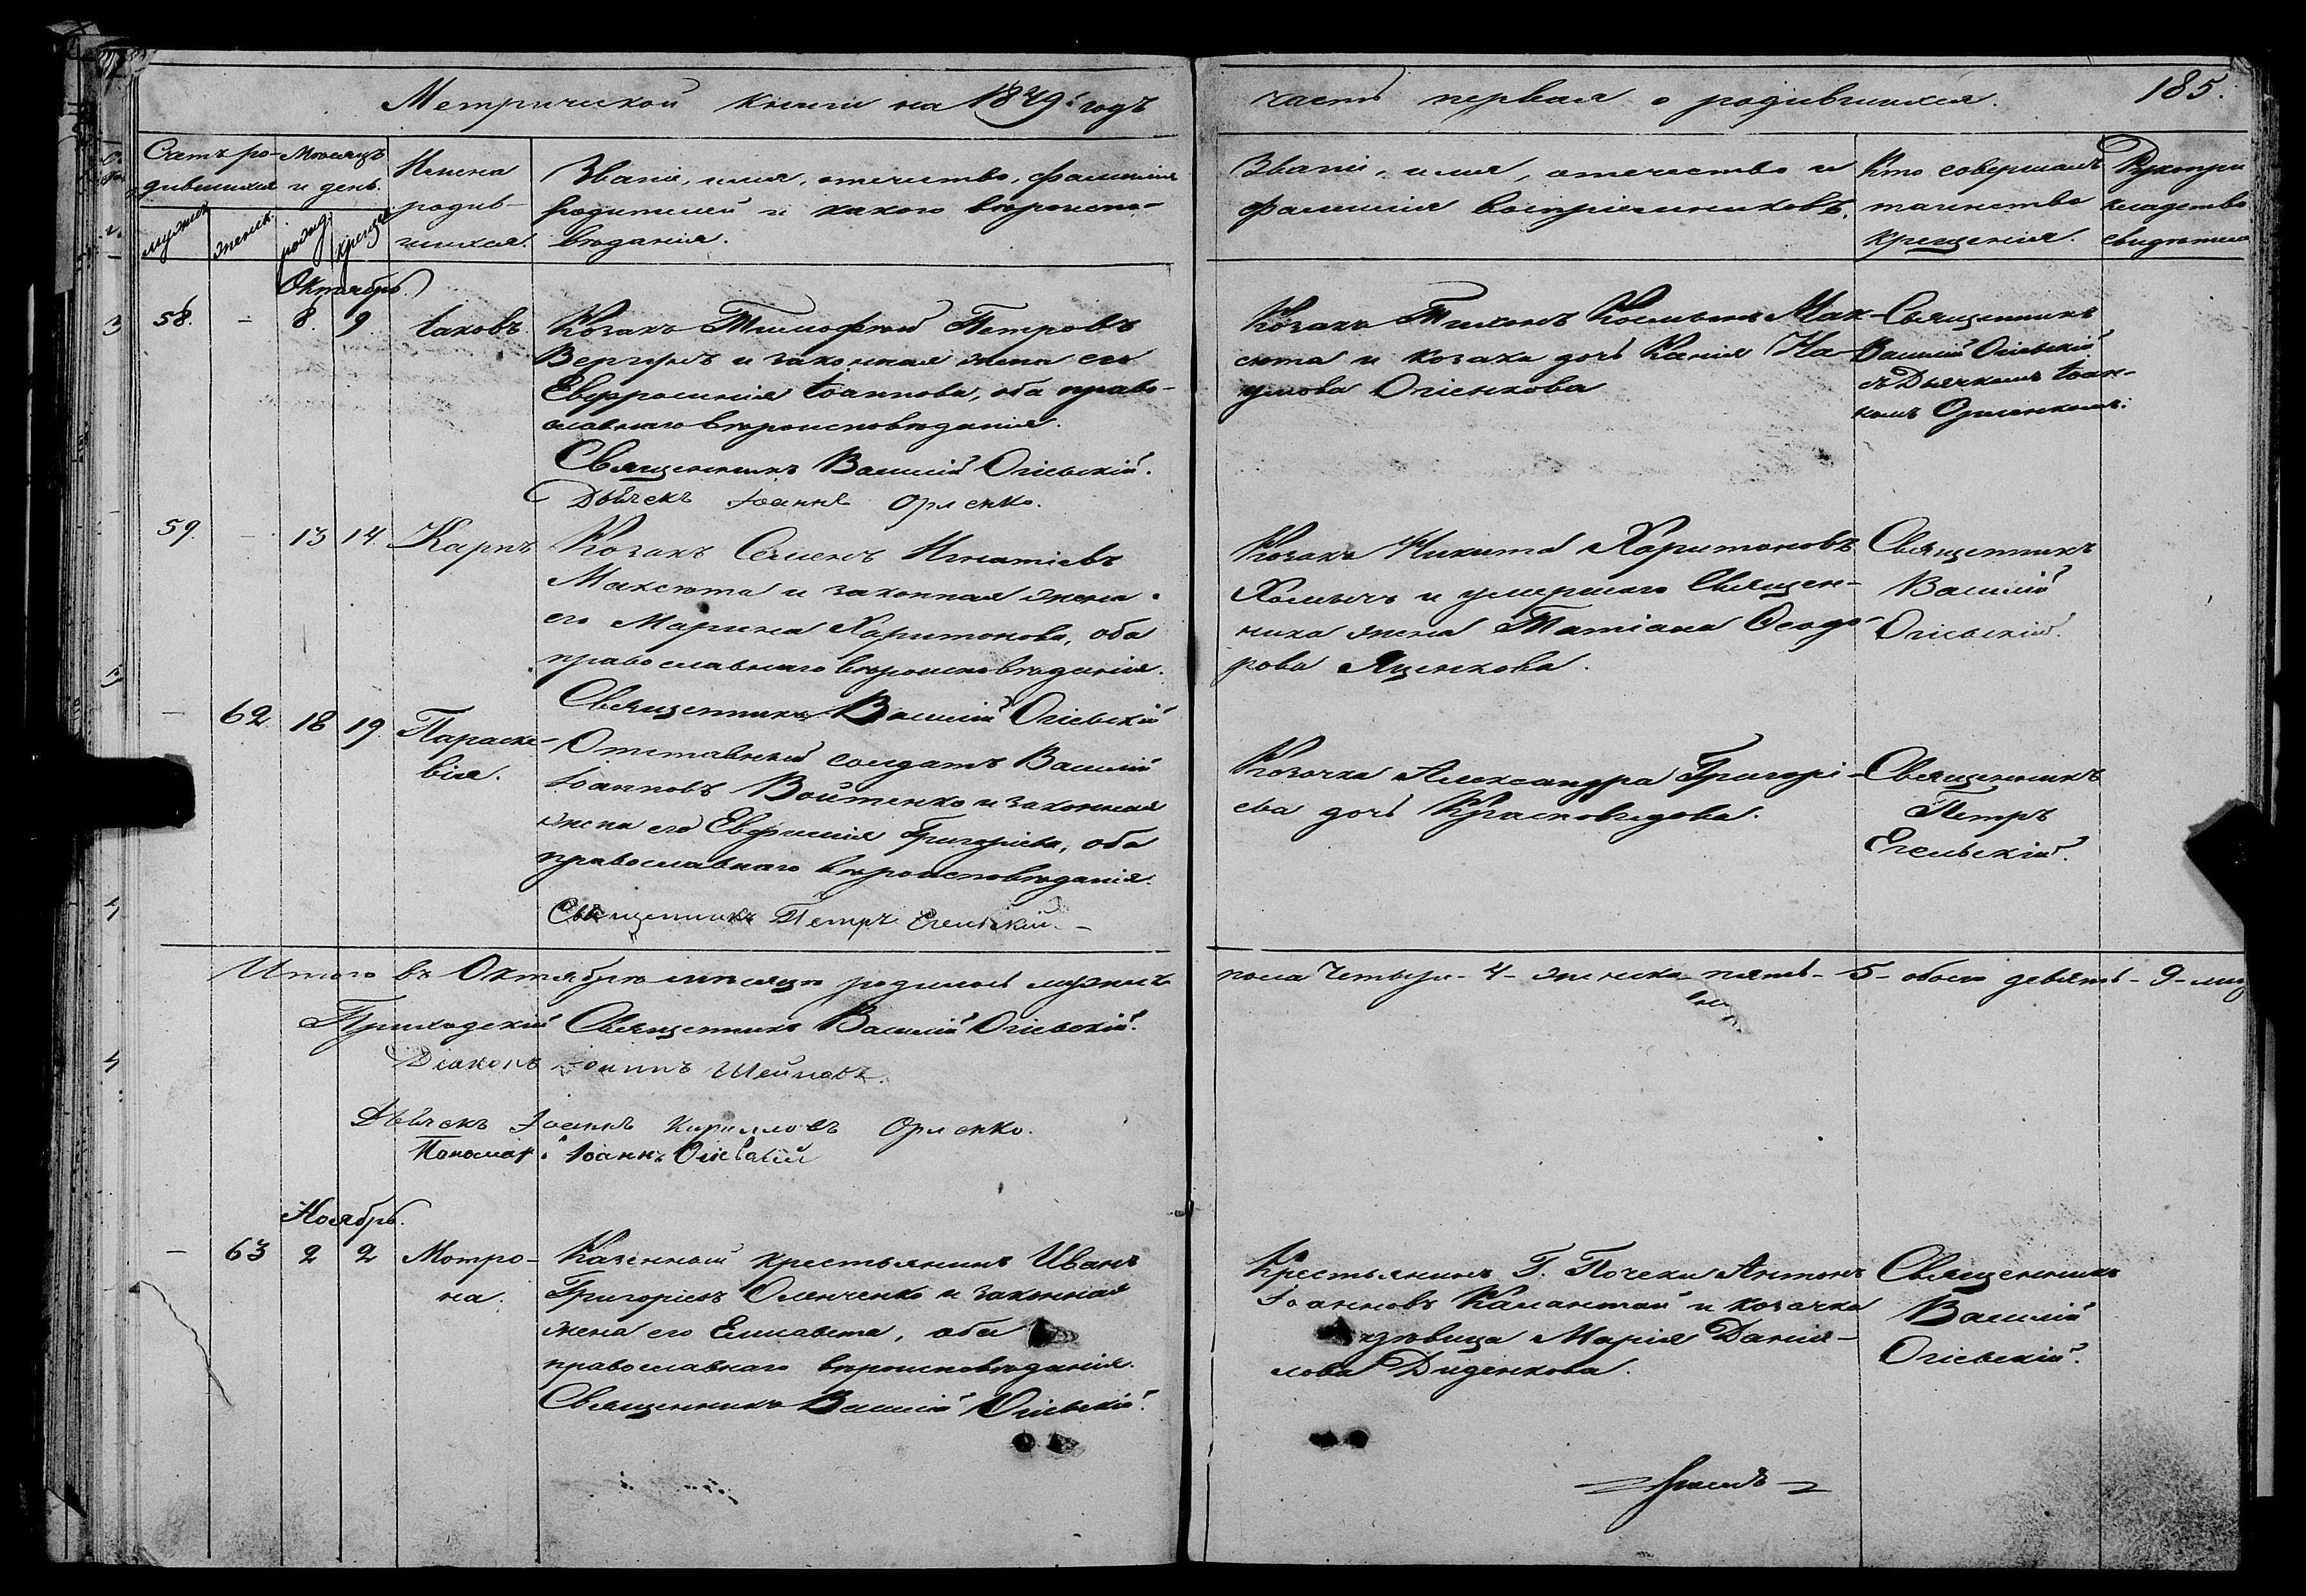 Метрической книги на 1849й годъ
часть первая о родившихся. 185.
Счетъ ро-
дившихся
мужск.
женск.
Мѣсяцъ
и день.
рожд.
крещен.
Имена
родив-
шихся.
Званіе, имя, отечество, фамилія
родителей и какого вѣроиспо-
вѣданія.
Званіе, имя, отечество и
фамилія воспріемниковъ.
Кто совершалъ
таинство
крещенія.
Рукопри
кладство
свидѣтел
Октябрь
58. - 8. 9. Іаковъ
Козакъ Тимофей Петровъ
и законная жена его
Евфросинія Іоаннова, оба право-
славнаго вѣроисповѣданія.
Священникъ Василій Огіевскій.
Дьячекъ Іоаннъ Орленко.
Козакъ Тихонъ Косминъ Мак-
сюта и козака дочь На-
умова Огіенкова
Священникъ
Василій Огіевскій
съ Дьячкомъ Іоан-
номъ Орленкомъ.
59. - 13 14. Карпъ
Козакъ Семенъ Игнатіевъ
Максюта и законная жена
его Марина Харитонова, оба
православнаго вѣроисповѣданія.
Священникъ Василій Огіевскій
Козакъ Никита Харитоновъ
Хомичъ и умершаго Священ-
ника жена Татіана Ѳеодо-
рова Яценкова.
Священникъ
Василій
Огіевскій.
- 62. 18 19. Параске-
вія.
Отставный солдатъ Василій
Іоанновъ Войтенко и законная
жена его Евфимія Григоріева, оба
православнаго вѣроисповѣданія.
Священникъ Петръ Егельскій.-
Козачка Александра Григорі-
ева дочь Красновидова.
Священникъ
Петръ
Егельскій.
Итого въ Октябрѣ мѣсяцѣ родилось мужеска
пола четыре- 4- женска пять- 5- обоего девять- 9-
Приходскій Священникъ Василій Огіевскій.
Діаконъ Іоаннъ
Дьячекъ Іоаннъ Кирилловъ Орленко.
Пономарь Іоаннъ Огіевскій
Ноябрь.
- 63 2 2 Мотро-
на.
Казенный крестьянинъ Иванъ
Григоріевъ Оленченко и законная
жена его Елисавета, оба
православнаго вѣроисповѣданія.
Священникъ Василій Огіевскій.
Крестьянинъ Г. Почеки Антонъ
Іоанновъ Калантай и козачка
вдовица Марія Даніи-
лова Диденкова.
Священникъ
Василій
Огіевскій.